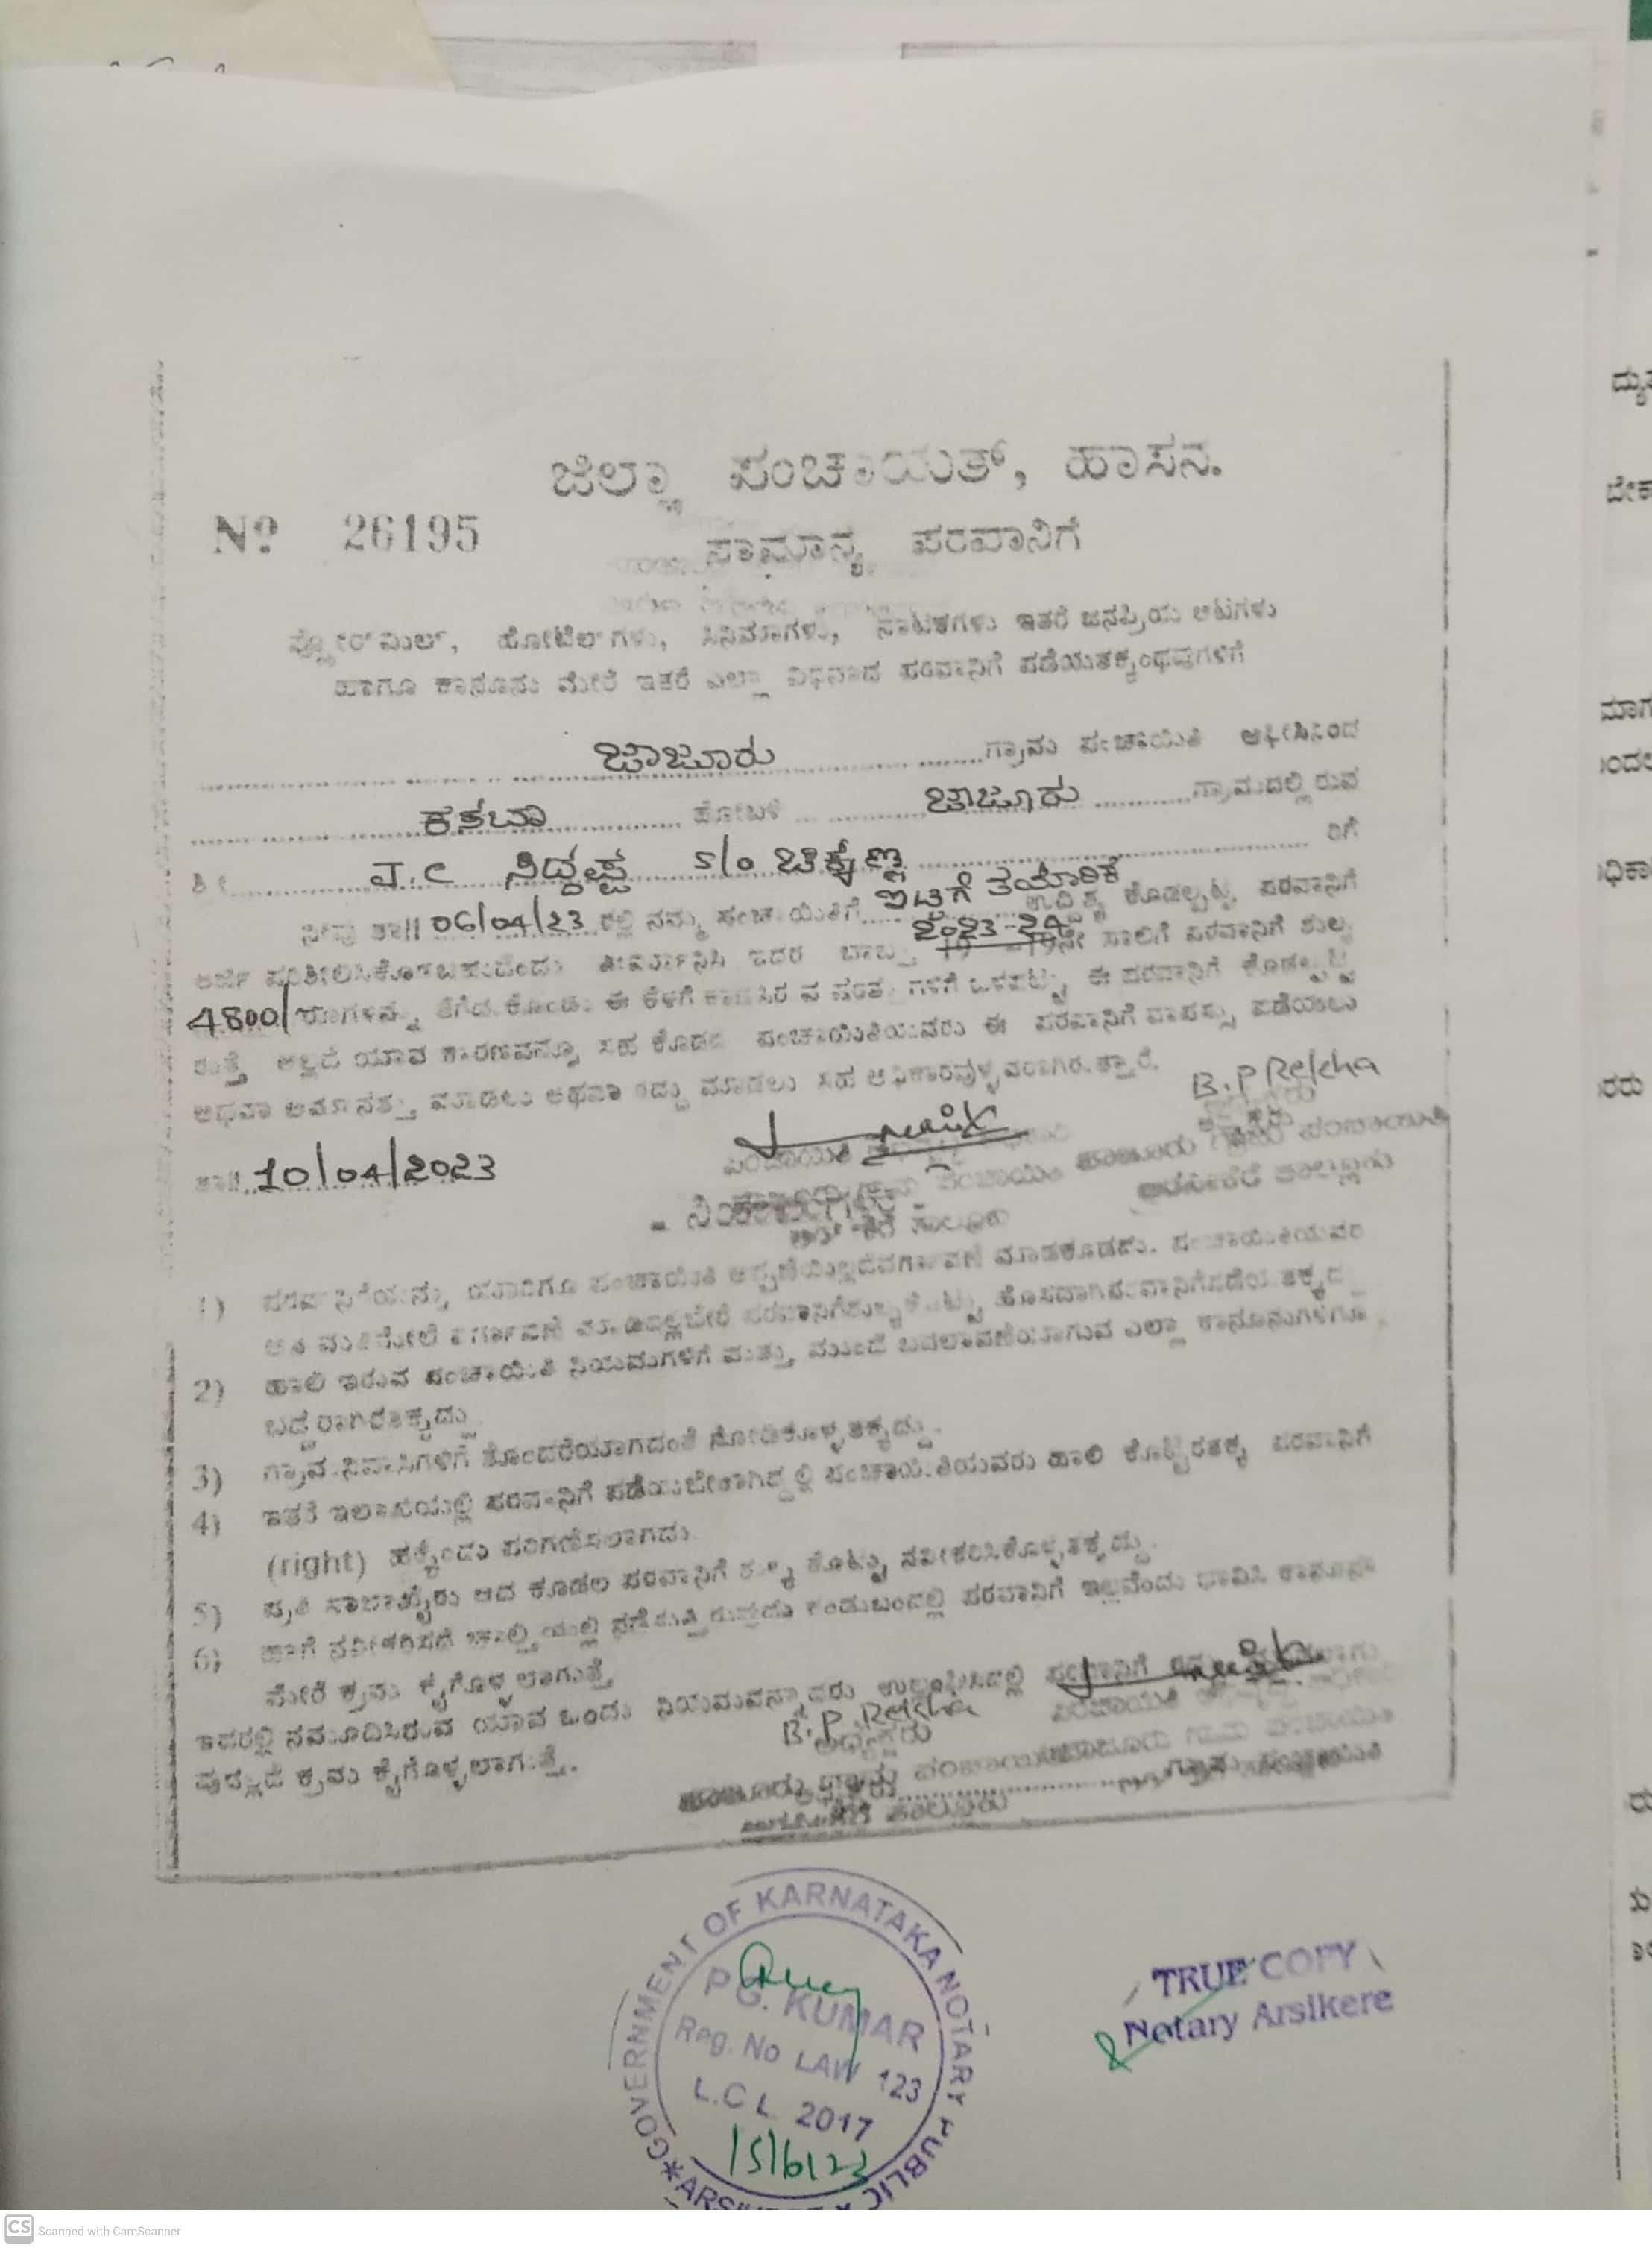 ಜಿಲ್ಲಾ ಪಂಚಾಯತ್, ಹಾಸನ.
Nº 26195
ಸಾಮಾನ್ಯ ಪರವಾನಿಗೆ
ಫ್ಲೋರ್‌ಮಿಲ್, ಹೋಟೆಲ್‌ಗಳು, ಸಿನಿಮಾಗಳು, ನಾಟಕಗಳು ಇತರೆ ಜನಪ್ರಿಯ ಆಟಗಳು
ಹಾಗೂ ಕಾನೂನು ಮೇರೆ ಇತರೆ ಎಲ್ಲಾ ವಿಧವಾದ ಪರವಾನಿಗೆ ಪಡೆಯತಕ್ಕಂಥವುಗಳಿಗೆ
ಜಾಜೂರು ಗ್ರಾಮ ಪಂಚಾಯಿತಿ ಆಫೀಸಿನಿಂದ
ಕಸಬಾ ಹೋಬಳಿ ಜಾಜೂರು ಗ್ರಾಮದಲ್ಲಿರುವ
ಶ್ರೀ J.C ಸಿದ್ದಪ್ಪ S/o ಚಿಕ್ಕಣ್ಣ ರಿಗೆ
ನೀವು ತಾ|| 06/04/23 ರಲ್ಲಿ ನಮ್ಮ ಪಂಚಾಯಿತಿಗೆ ಇಟ್ಟಿಗೆ ತಯಾರಿಕೆ ಉದ್ದಿಶ್ಯ ಕೊಡಲ್ಪಟ್ಟ ಪರವಾನಿಗೆ
ಅರ್ಜಿ ತೀರ್ಮಾನಿಸಿ ಇದರ ಬಾಬ್ತು 2023-24 19 -19ನೇ ಸಾಲಿಗೆ ಪರವಾನಿಗೆ ಶುಲ್ಕ
4800/ ರೂಗಳನ್ನು ತೆಗೆದುಕೊಂಡು ಈ ಕೆಳಗೆ ಕಾಣಿಸಿರುವ ಷರತ್ತುಗಳಿಗೆ ಒಳಪಟ್ಟು ಈ ಪರವಾನಿಗೆ ಕೊಡಲ್ಪಟ್ಟಿ
ರುತ್ತೆ ಅಲ್ಲದೆ ಯಾವ ಕಾರಣವನ್ನೂ ಸಹ ಕೊಡದೆ ಪಂಚಾಯಿತಿಯವರು ಈ ಪರವಾನಿಗೆ ವಾಪಸ್ಸು ಪಡೆಯಲು
ಅಥವಾ ಅಮಾನತ್ತು ಮಾಡಲು ಅಥವಾ ರದ್ದು ಮಾಡಲು ಸಹ ಅಧಿಕಾರವುಳ್ಳವರಾಗಿರುತ್ತಾರೆ.
B.P Rekha
ತಾ|| 10/04/2023
ಜಾಜೂರು ಗ್ರಾಮ ಪಂಚಾಯಿತಿ
ಅರಸೀಕೆರೆ ತಾಲ್ಲೂಕು
1) ಪರವಾನಿಗೆಯನ್ನು ಯಾರಿಗೂ ಪಂಚಾಯಿತಿ ಅಪ್ಪಣೆಯಿಲ್ಲದೆ ವರ್ಗಾವಣೆ ಮಾಡಕೂಡದು. ಪಂಚಾಯಿತಿಯವರ
ಅನುಮತಿಮೇಲೆ ವರ್ಗಾವಣೆ ಪರವಾನಿಗೆ ಶುಲ್ಕ ಕೊಟ್ಟು ಹೊಸದಾಗಿ ಪರವಾನಿಗೆ ಪಡೆಯತಕ್ಕದ್ದು
2) ಹಾಲಿ ಇರುವ ಪಂಚಾಯಿತಿ ನಿಯಮಗಳಿಗೆ ಮತ್ತು ಮುಂದೆ ಬದಲಾವಣೆಯಾಗುವ ಎಲ್ಲಾ ಕಾನೂನುಗಳಿಗೂ
ಬದ್ಧರಾಗಿರತಕ್ಕದ್ದು
3) ಗ್ರಾಮ ನಿವಾಸಿಗಳಿಗೆ ತೊಂದರೆಯಾಗದಂತೆ ನೋಡಿಕೊಳ್ಳತಕ್ಕದ್ದು.
4) ಇತರೆ ಇಲಾಖೆಯಲ್ಲಿ ಪರವಾನಿಗೆ ಪಡೆಯಬೇಕಾಗಿದ್ದಲ್ಲಿ ಪಂಚಾಯಿತಿಯವರು ಹಾಲಿ ಕೊಟ್ಟಿರತಕ್ಕ ಪರವಾನಿಗೆ
(right) ಹಕ್ಕೆಂದು ಪರಿಗಣಿಸಲಾಗದು
5) ಪ್ರತಿ ಸಾಲಾಖೈರು ಆದ ಕೂಡಲೆ ಪರವಾನಿಗೆ ಶುಲ್ಕ ಕೊಟ್ಟು ನವೀಕರಿಸಿಕೊಳ್ಳತಕ್ಕದ್ದು.
6) ಹಾಗೆ ನವೀಕರಿಸದೆ ಚಾಲ್ತಿಯಲ್ಲಿ ನಡೆಸುತ್ತಿರುವುದು ಕಂಡುಬಂದಲ್ಲಿ ಪರವಾನಿಗೆ ಇಲ್ಲವೆಂದು ಭಾವಿಸಿ ಕಾನೂನಿನ
ಮೇರೆ ಕ್ರಮ ಕೈಗೊಳ್ಳಲಾಗುತ್ತೆ
ಇದರಲ್ಲಿ ನಮೂದಿಸಿರುವ ಯಾವ ಒಂದು ನಿಯಮವನ್ನಾದರು ಉಲ್ಲಂಘಿಸಿದಲ್ಲಿ ಪರವಾನಿಗೆ
ವುದಲ್ಲದೆ ಕ್ರಮ ಕೈಗೊಳ್ಳಲಾಗುತ್ತೆ.
B.P. Rekha
ಅಧ್ಯಕ್ಷರು
ಜಾಜೂರು ಗ್ರಾಮ ಪಂಚಾಯಿತಿ
ಗ್ರಾಮ ಪಂಚಾಯಿತಿ
ಅರಸೀಕೆರೆ ತಾಲ್ಲೂಕು
GOVERNMENT OF KARNATAKA NOTARY PUBLIC
P.G. KUMAR
Reg. No LAW 123
L.C L 2017
15/6/23
TRUE COPY
Notary Arsikere
CS Scanned with CamScanner